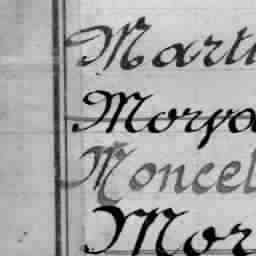 Marti
Morya
Moncel
Mor